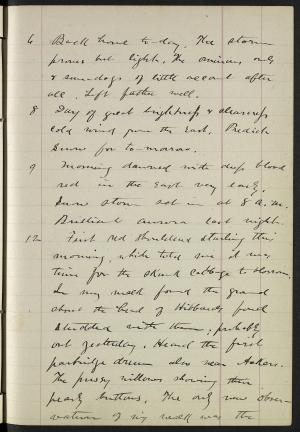 6 Back home to-day. The storm
proves but light. The ominous
& sun-dogs of little account after
all. Left father well.
8 Day of great brightness & clearness
cold wind from the East. Predict
snow for to-morrow.
9 Morning dawned with deep blood
red in the East very early.
Snow storm set in at 8 a.m.
Brilliant aurora last night.
12 First red shouldered starling this
morning, which told me it was
time for the skunk cabbage to blossom.
In my walk found the ground
about the head of Hibbards pond
studded with them; probably
out yesterday. Heard the first
partridge drum also near
The pussy willows showing their
pearly buttons. The only new obser-
vation of my walk was the